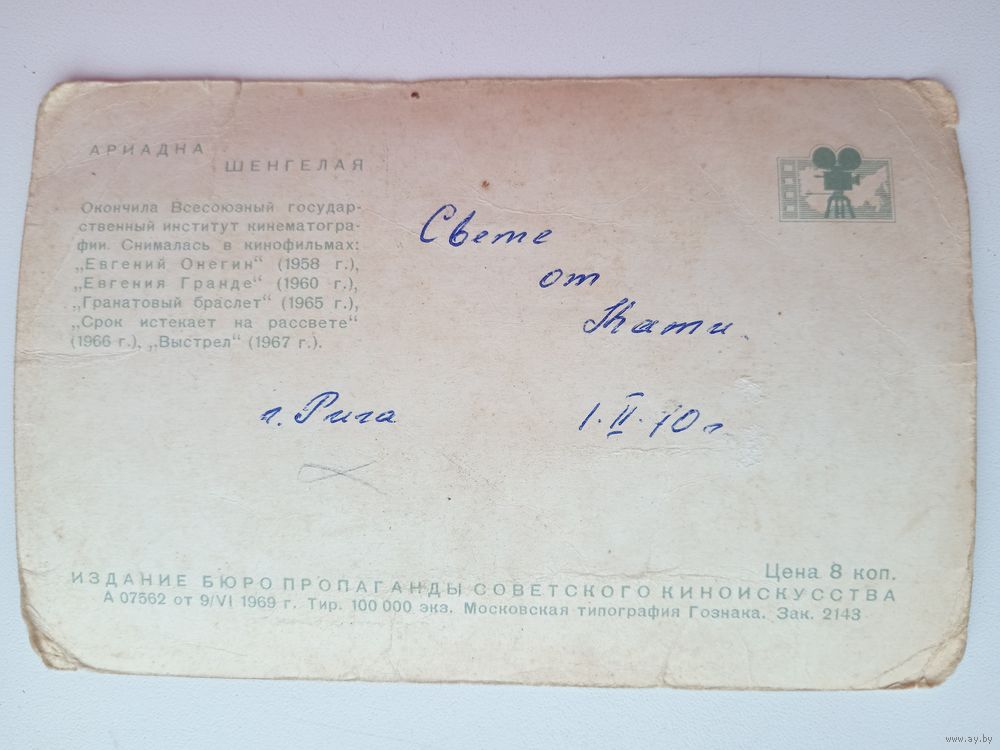 АРИАДНА
ШЕНГЕЛАЯ
Окончила Всесоюзный государ-
ственный институт кинематогра-
фии. Снималась в кинофильмах:
„Евгений Онегин“ (1958 г.),
„Евгения Гранде“ (1960 г.),
„Гранатовый браслет“ (1965 г.),
„Срок истекает на рассвете“
(1966 г.), „Выстрел“ (1967 г.).
Свете
от
Кати.
г. Рига
1.II.70 г
Цена 8 коп.
ИЗДАНИЕ БЮРО ПРОПАГАНДЫ СОВЕТСКОГО КИНОИСКУССТВА
А 07562 от 9/VI 1969 г. Тир. 100 000 экз. Московская типография Гознака. Зак. 2143
www.ay.by